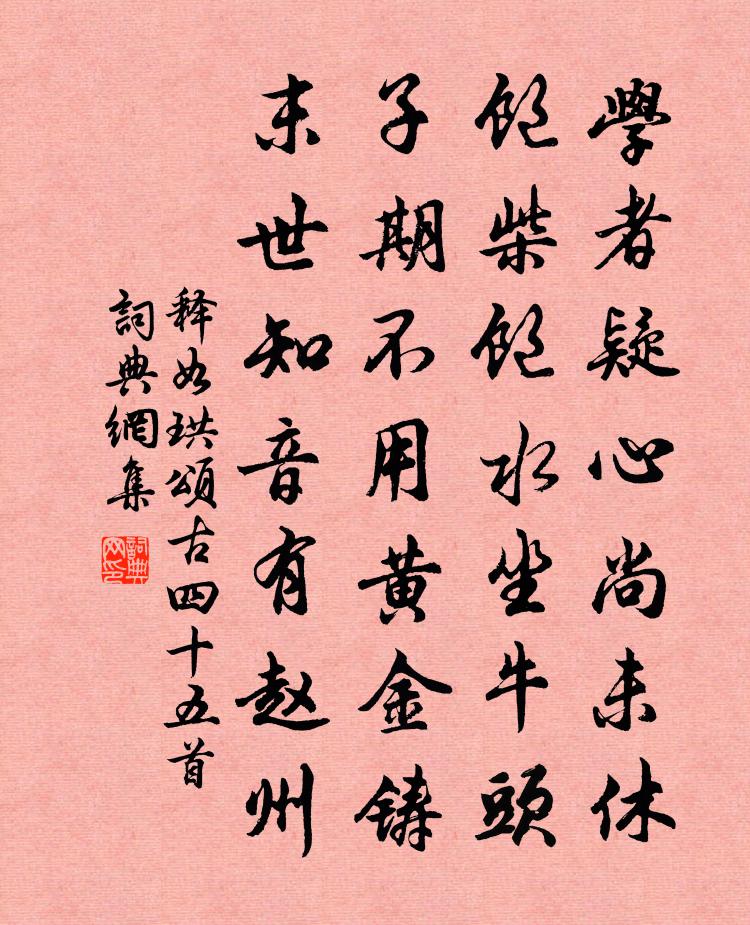 學者疑心尚未休
飽柴飽水坐牛頭
子期不用黄金鋳
末世知音有赵州
释如珙頌古四十五首
詞典網集
詞典网印